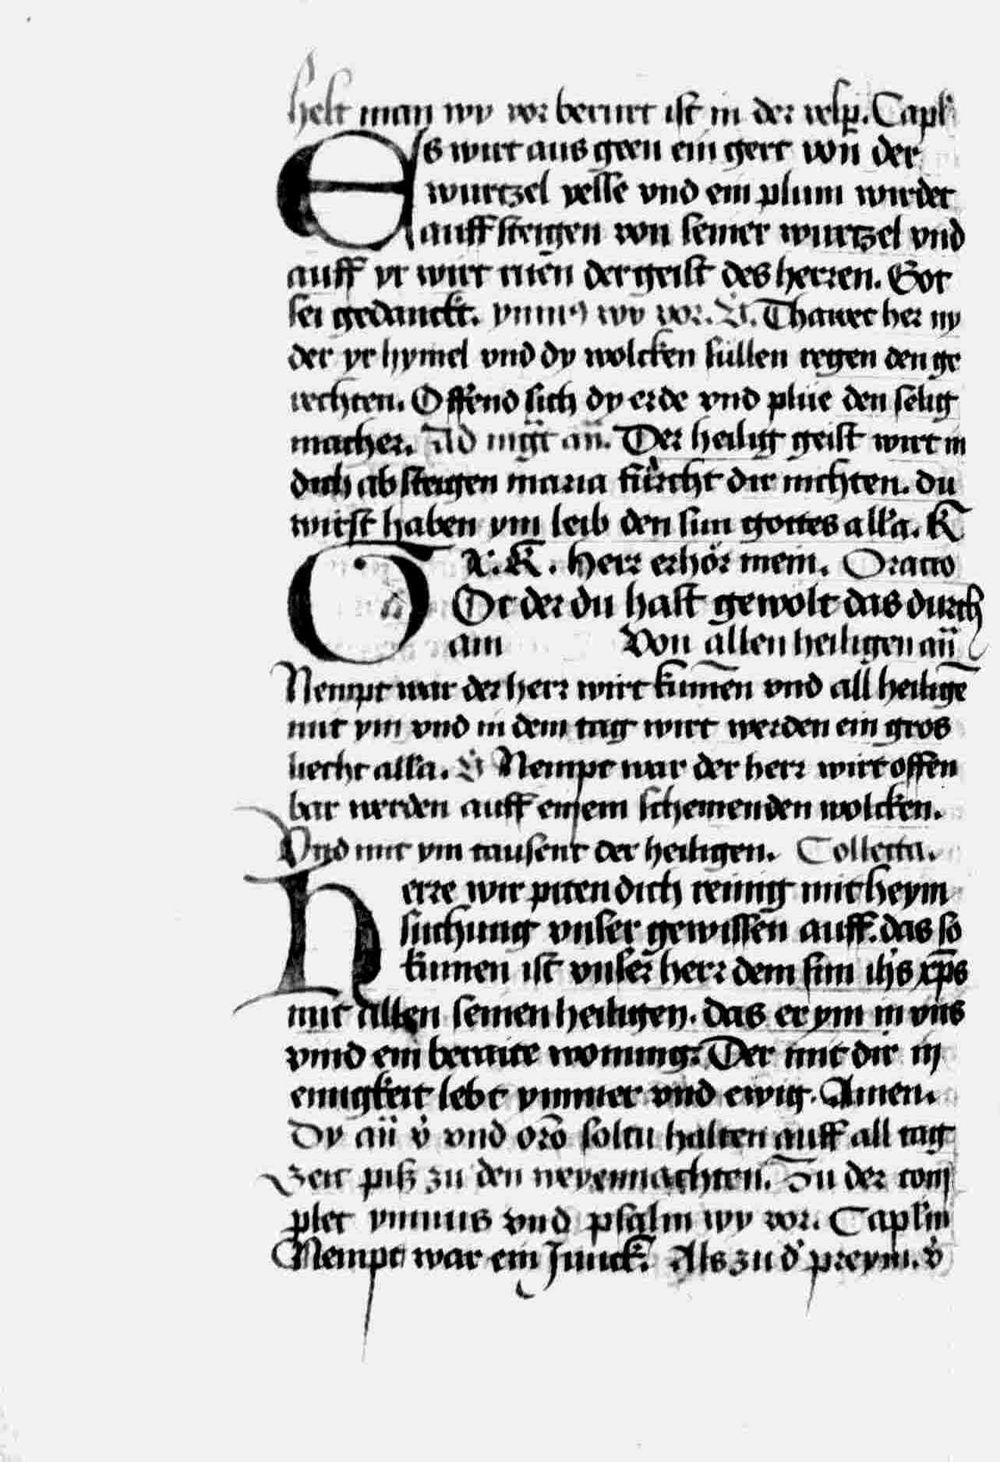 helt man wy vor berurt ist in der vesp̄. Capl'
Es wirt aus geen ein gert von der
wurtzel yesse vnd ein plum wirdet
auff steigen von seiner wurtzel vnd
auff yr wirt ruen der geist des herren. Got
sei gedanckt. ymnus wy vor. V̇. Thawet her ny
der yr hymel vnd dy wolcken sullen regen den ge
rechten. Offend sich dy erde vnd plue den selig
macher. Ad mg̅t an̅. Der heilig geist wirt in
dich ab steigen maria fürcht dir nichten. du
wirst haben ym leib den sun gottes all'a. K
X. K. Herr erhör mein. Oracio
Got der du hast gewolt das durch
am Von allen heiligen an̅
Nempt war der herr wirt kumēn vnd all heiligē
mit ym vnd in dem tag wirt werden ein gros
liecht all'a. V̇ Nempt war der herr wirt offen
bar werden auff einem scheinenden wolcken.
Vnd mit ym tausent der heiligen. Collecta.
Herre wir piten dich reinig mit heym
suchung vnser gewissen auff. das so
kumen ist vnser̄ herr dein sun ih's xp̄s
mit allen seinen heiligen. das er ym in vns
vind ein beraite wonung. Der mit dir in
einigkeit lebt ymmer vnd ewig. Amen.
Dy an̅ v̇ vnd or̅o soltu halten auff all tag
zeit piß zu den weyennachten. Zu der com
plet ymnus vnd psalm wy vor. Capl'm
Nempt war ein Junck. Als zu d' preym. v̇